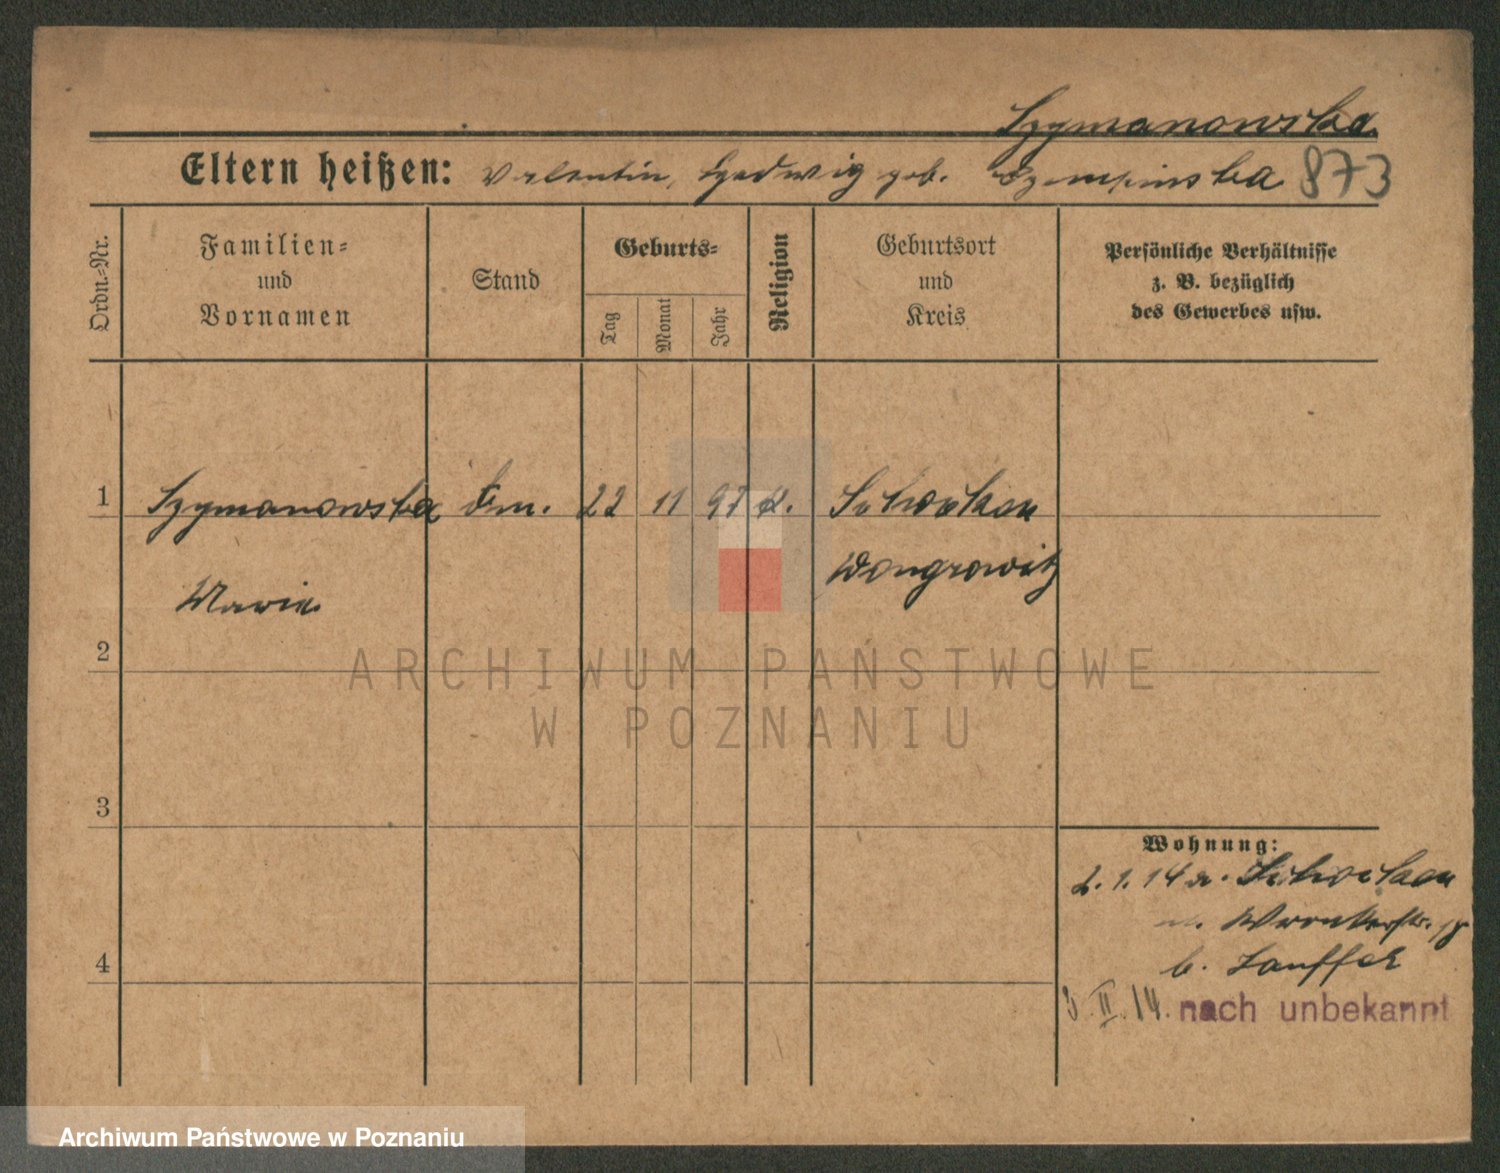 Szymanowska
Eltern heißen: Valentin, Hedwig geb. Szempinska 873
Ordn.-Nr.
Familien-
und
Vornamen
Stand
Geburts-
Tag
Monat
Jahr
Religion
Geburtsort
und
Kreis
Persönliche Verhältnisse
z. B. bezüglich
des Gewerbes usw.
1 Szymanowska 22 11 97 K.
Wongrowitz
Marie
2
ARCHIWUM PAŃSTWOWE
W POZNANIU
3
Wohnung:
2. 1. 14
4
b. Lauffer
3. II. 14. nach unbekannt
Archiwum Państwowe w Poznaniu